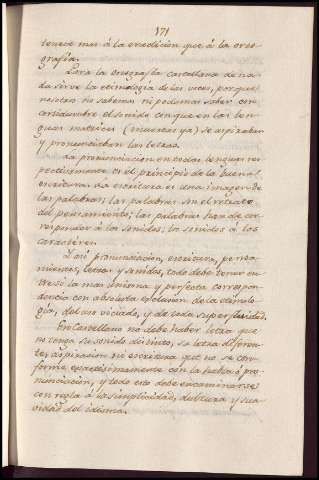 171
tenece mas á la erudicion que á la orto-
grafia.
Para la ortografia castellana de na-
da sirve la etimologia de las voces, porque
nosotros no sabemos ni podemos saber con
certidumbre el sonido con que en las len-
guas matrices (muertas ya) se aspiraban
y pronunciaban las letras.
La pronunciacion en todas lenguas res-
pectivamente es el principio de la buena
escritura. La escritura es una imagen de
las palabras; las palabras son el retrato
del pensamiento; las palabras han de cor-
responder á los sonidos; los sonidos á los
caracteres.
Y así pronunciacion, escritura, pensa-
mientos, letras y sonidos, todo debe tener en-
tre sí la mas íntima y perfecta correspon-
dencia con absoluta exclusion de la etimolo-
gía, del uso viciado, y de toda superfluidad.
En Castellano no debe haber letra que
no tenga su sonido distinto, ya letra diferen-
te, aspiracion ni escritura que no se con-
forme exactísimamente con la habla ó pro-
nunciacion, y todo esto debe encaminarse
con regla á la simplicidad, dulzura y sua-
vidad del idioma.